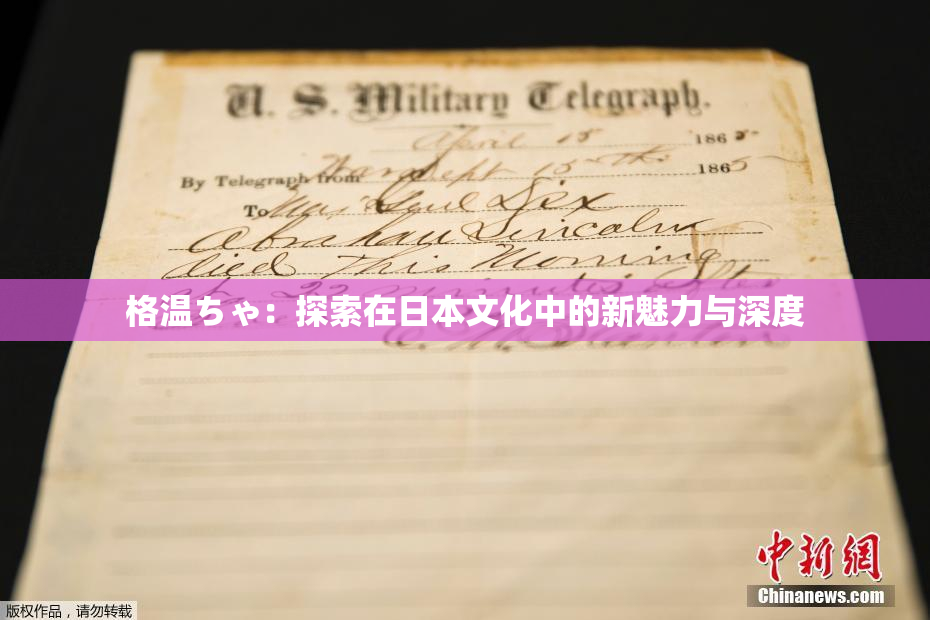 U. S. Military Telegraph.
April 15 1865
By Telegraph from War Dept 15th 1865
To Maj Genl Dix
Abraham Lincoln
died This Morning
22 minutes after
格温ちゃ：探索在日本文化中的新魅力与深度
E. M. Stanton
中新网
Chinanews.com
版权作品，请勿转载